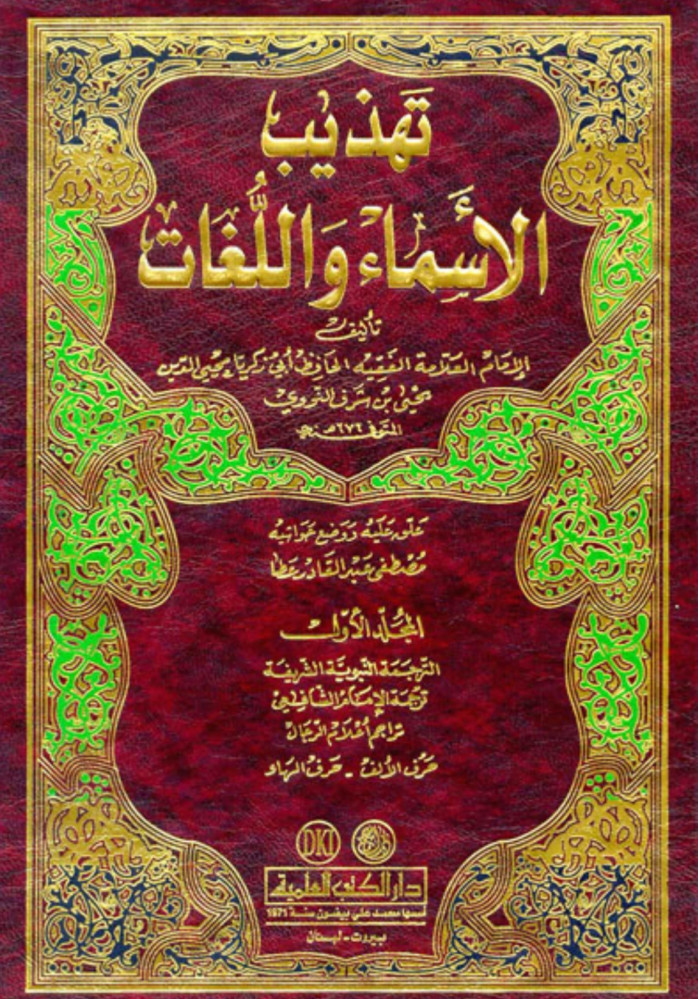 تَهذيب
الأَسماء وَاللُّغَات
تأليف
الإمام العلامة الفقيه الحافظ أبي زكريا محيي الدين
يحيى بن شرف النووي
المتوفى ٦٧٦ هـ
علق عليه ووضع حواشيه
مصطفى عبد القادر عطا
المجلد الأول
الترجمة النبوية الشريفة
ترجمة الإمام الشافعي
تراجم أعلام الرجال
حرف الألف - حرف الهاء
DKI
دار الكتب العلمية
أسسها محمد علي بيضون سنة 1971
بيروت - لبنان